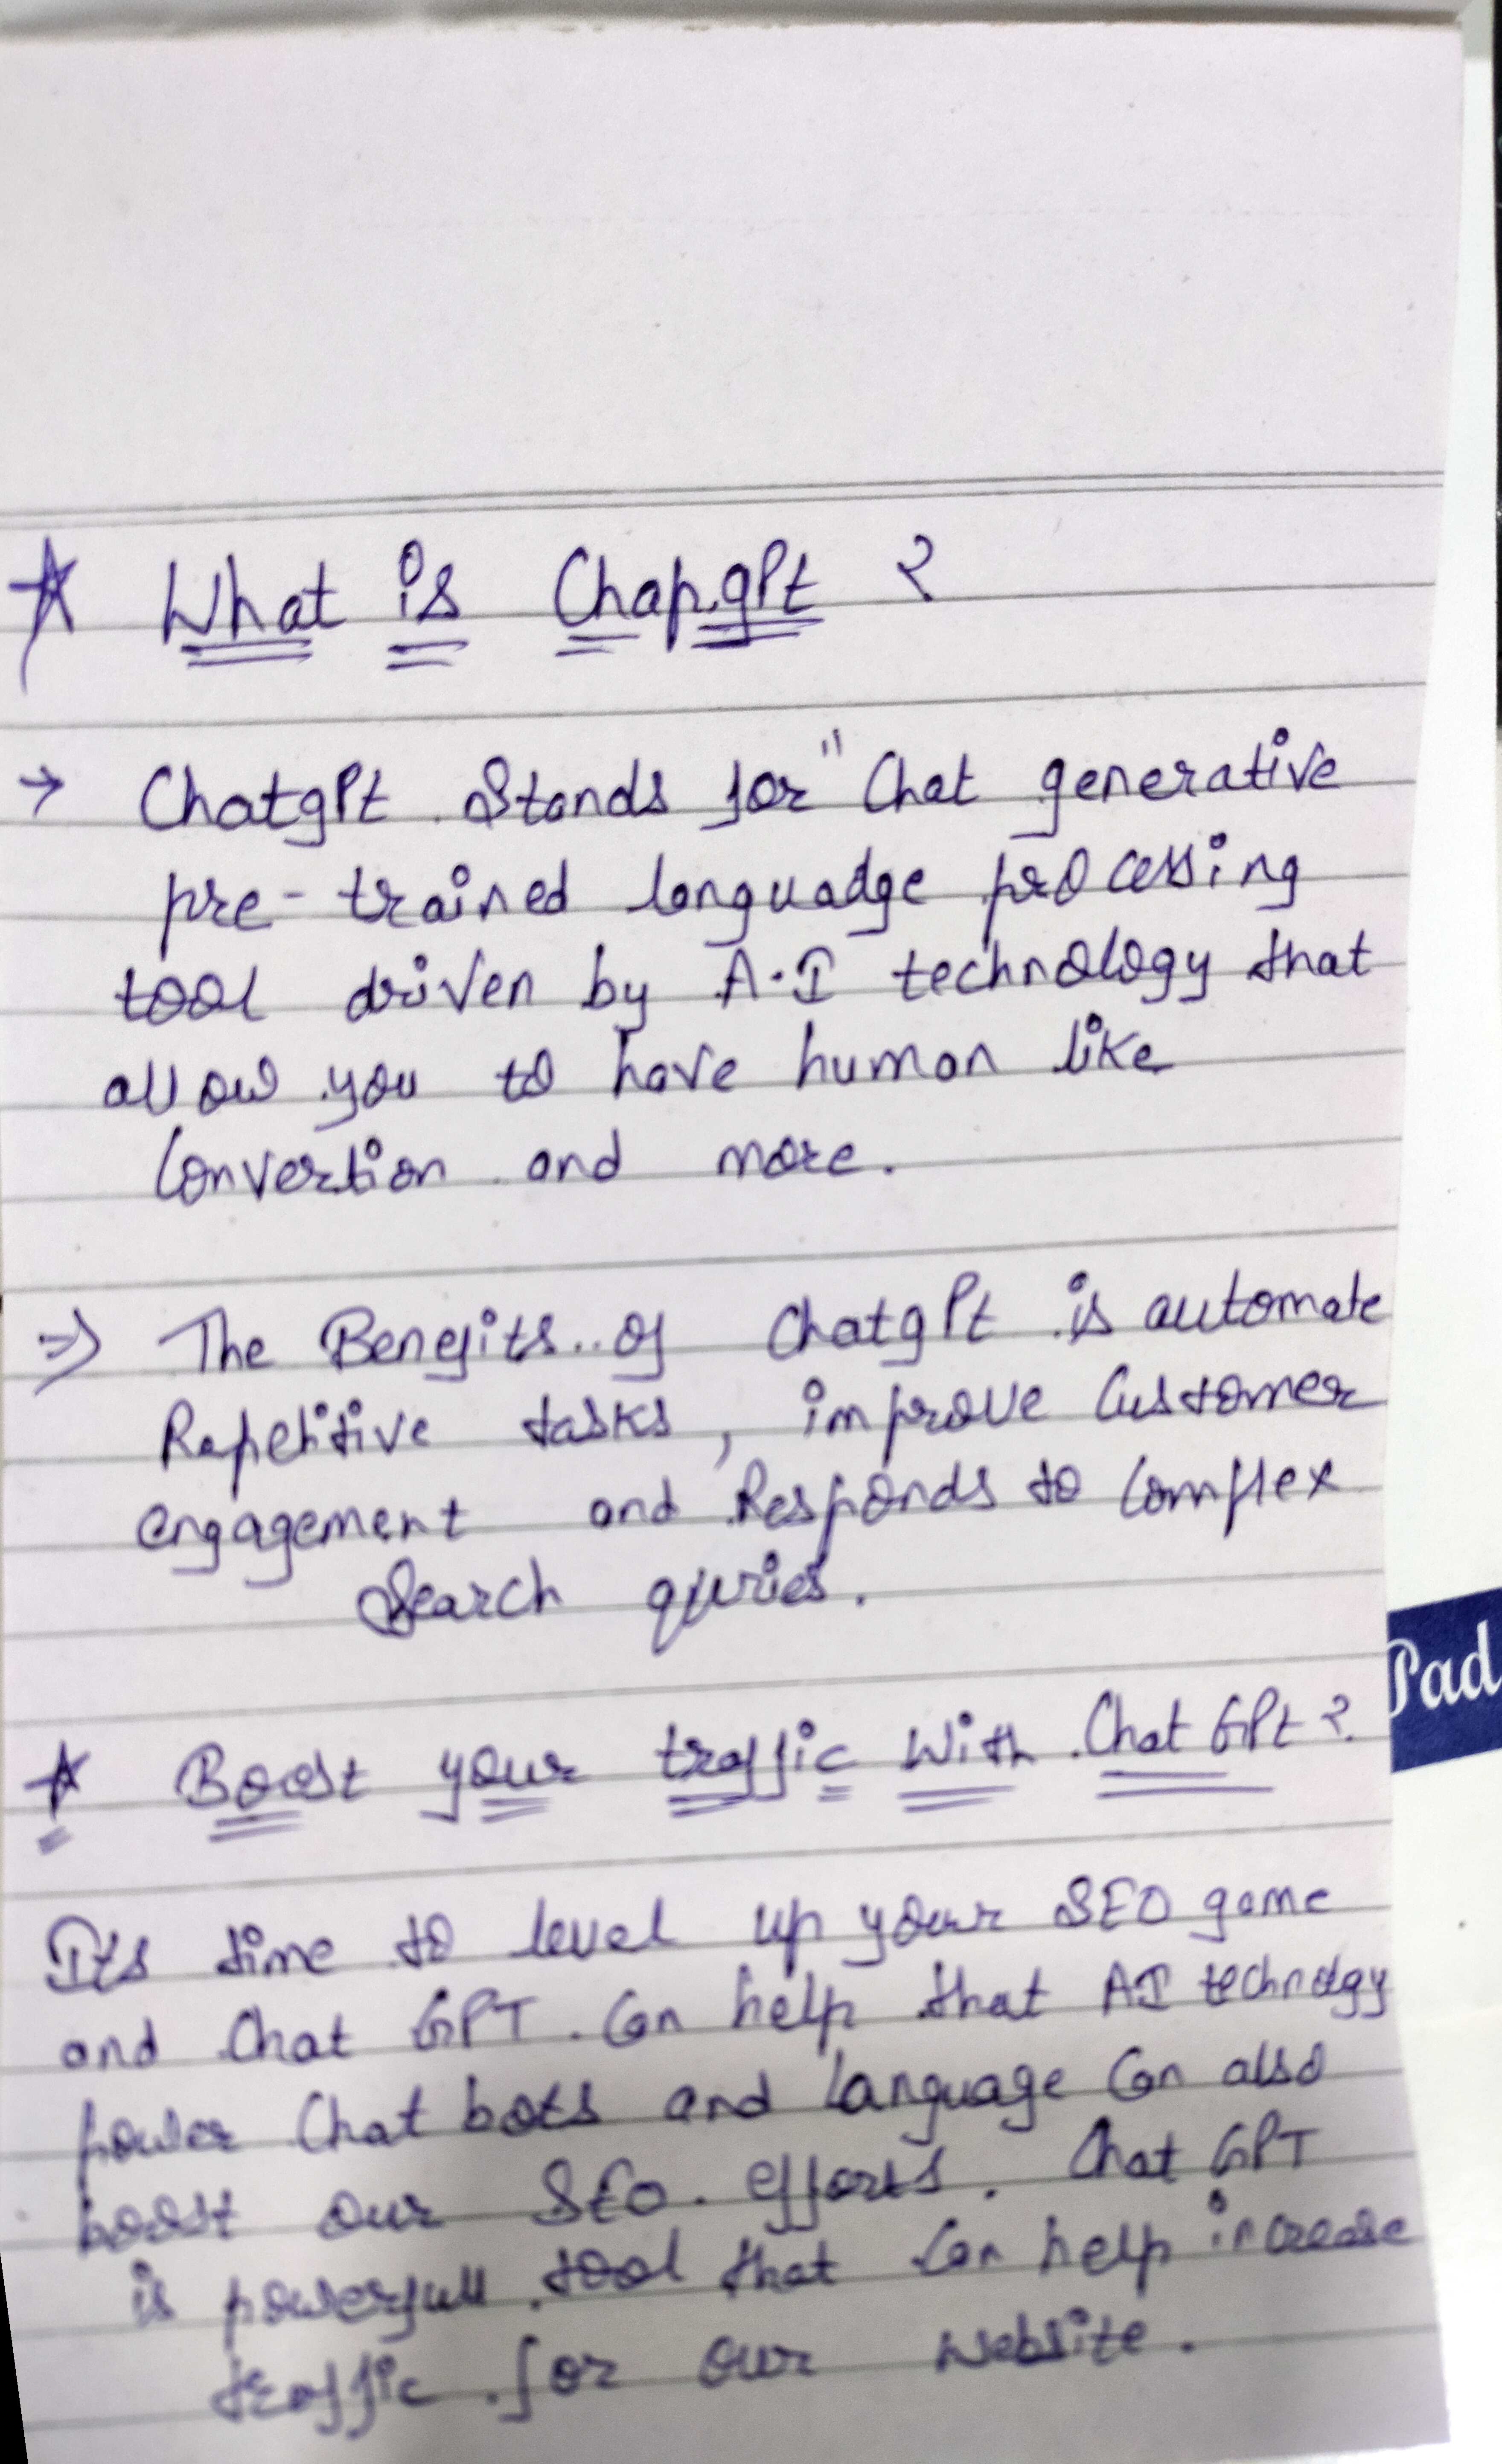 ☆ What is Chap.gPt ?
→ ChatgPt Stands for " Chat generative
pre-trained languadge processing
tool driven by A.I technology that
allow you to have human like
Convertion and more.
⇒ The Benefits.. of ChatgPt is automate
Repetitive tasks, improve Customer
engagement and Responds to Complex
Search quries.
☆ Boost your traffic With Chat GPt ?
It's time to level up your SEO game
and Chat GPT. Can help that AI technolgy
power Chat bots and language Can also
boost our SEO. efforts. Chat GPT
is powerfull tool that Can help increase
traffic for our website.
Pad